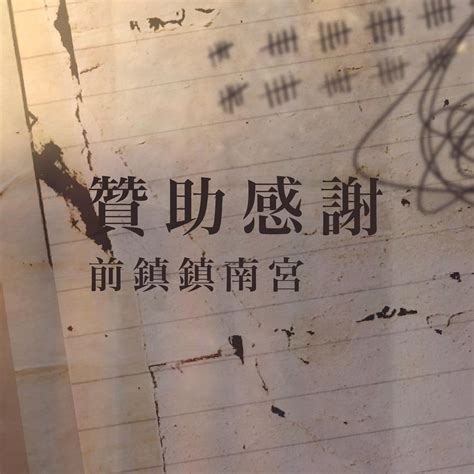 贊助感謝
前鎮鎮南宮